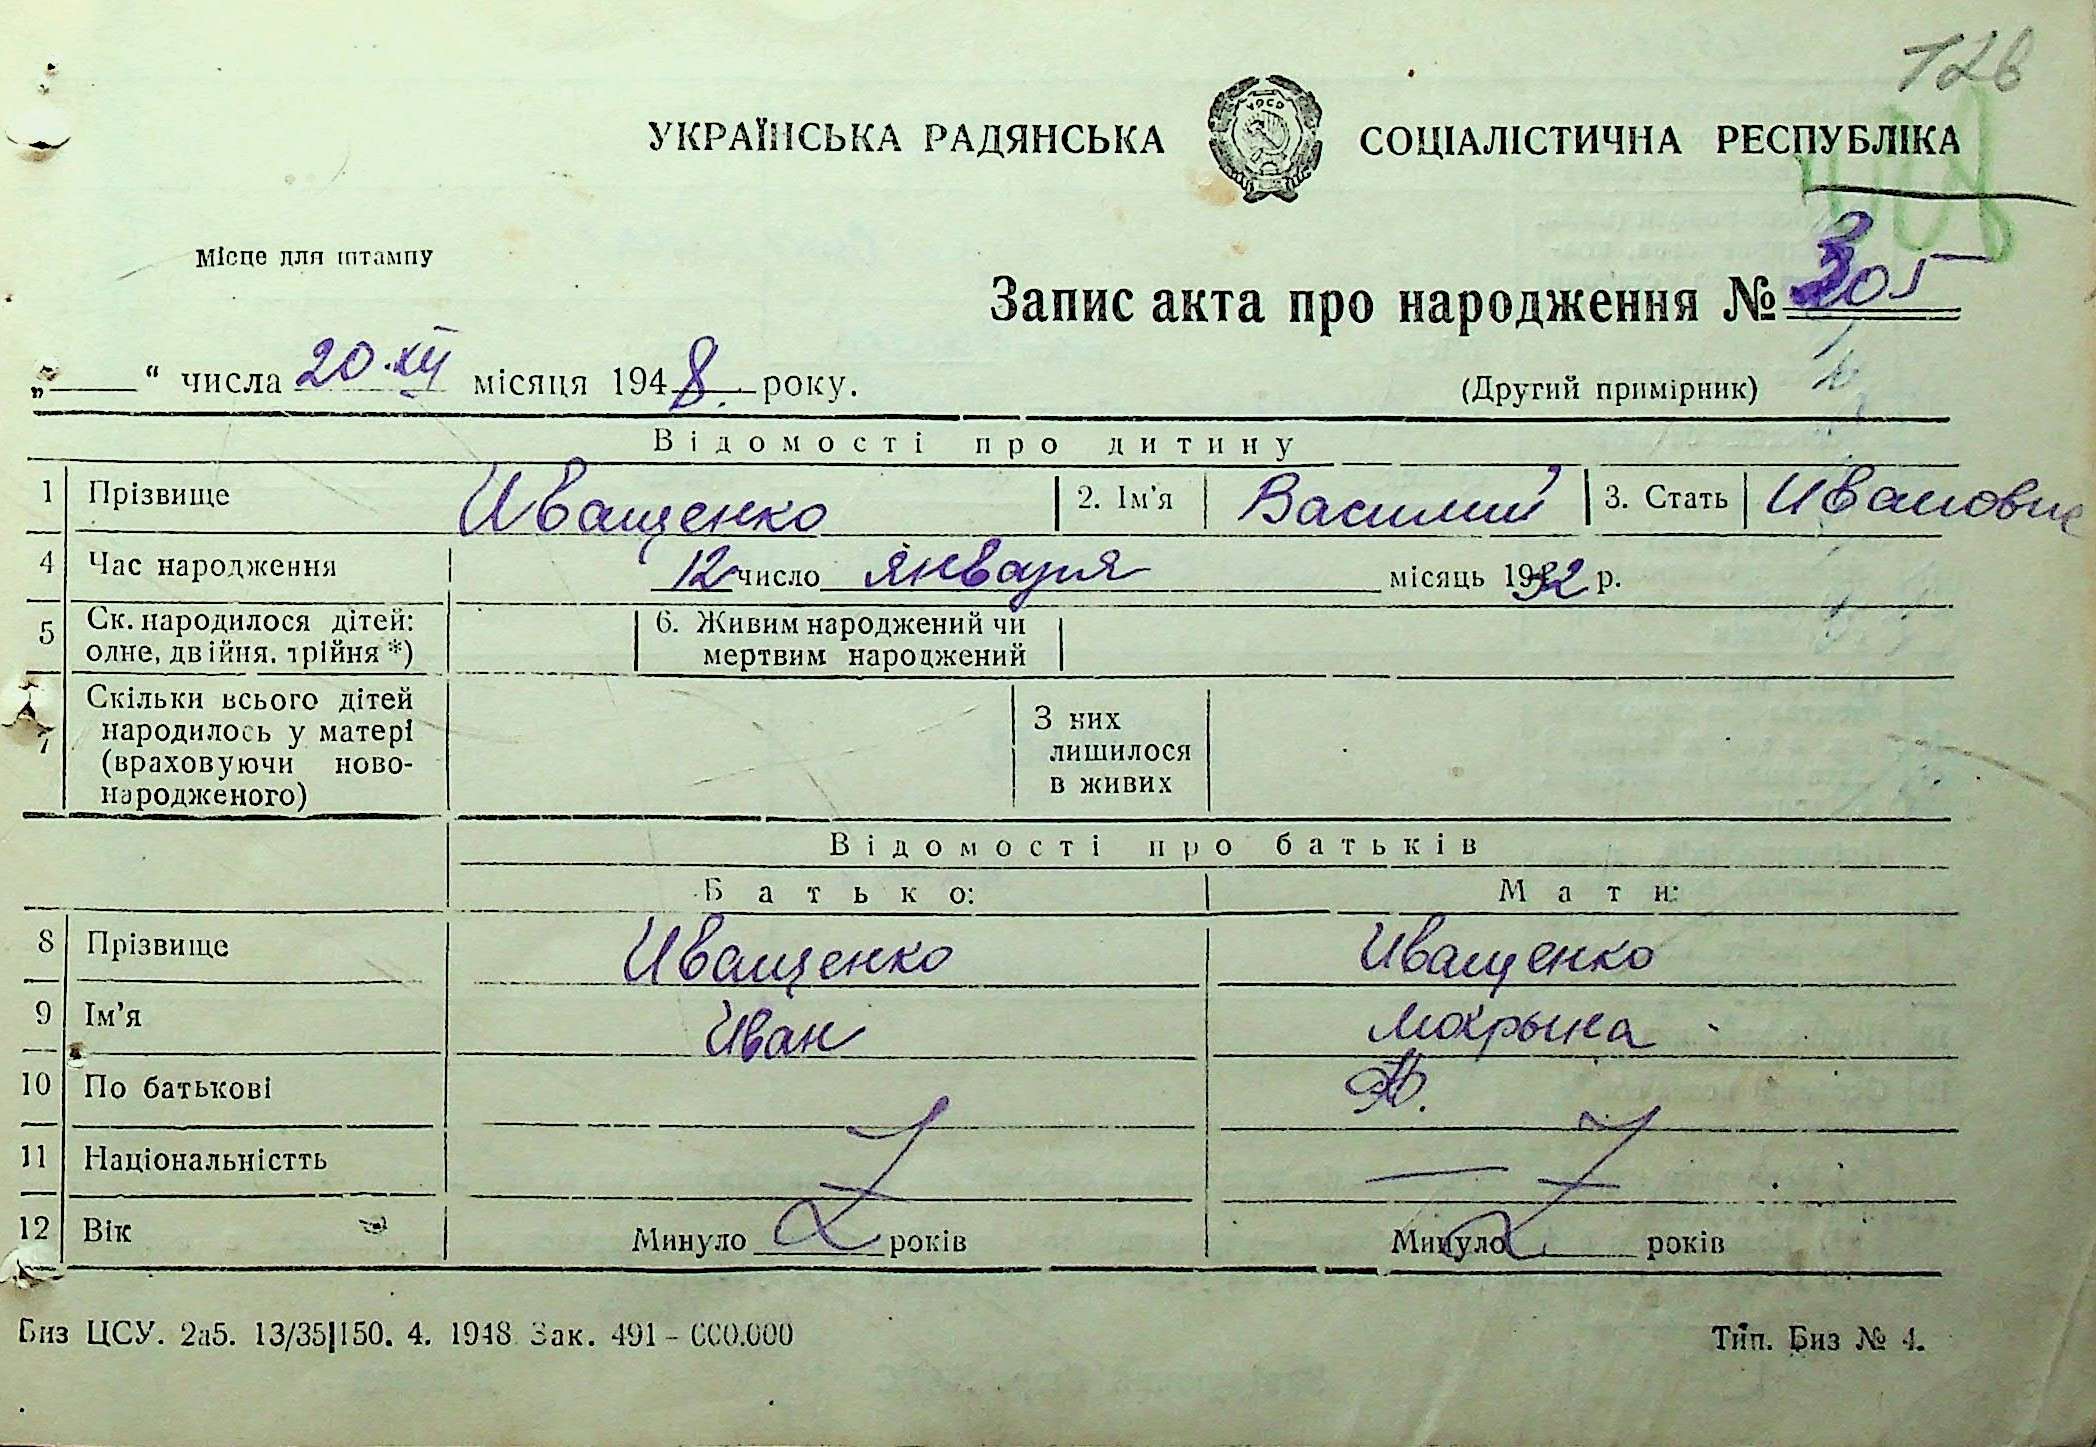 126
УКРАЇНСЬКА РАДЯНСЬКА СОЦІАЛІСТИЧНА РЕСПУБЛІКА
УРСР
Місце для штампу
Запис акта про народження № 305
„ “ числа 20.XII місяця 1948. року.
(Другий примірник)
Відомості про дитину
1 Прізвище Иващенко 2. Ім’я Василий 3. Стать Иванович
4 Час народження 12 число января місяць 1932 р.
5 Ск. народилося дітей: олне, двійня, трійня *) 6. Живим народжений чи мертвим народжений
7 Скільки всього дітей народилось у матері (враховуючи ново-народженого) З них лишилося в живих
Відомості про батьків
Батько: Мати:
8 Прізвище Иващенко Иващенко
9 Ім’я Иван Мокрына
10 По батькові
11 Національністть —
12 Вік Минуло років Минуло років
Биз ЦСУ. 2а5. 13/35|150. 4. 1948 Зак. 491 – 600.000
Тип. Биз № 4.